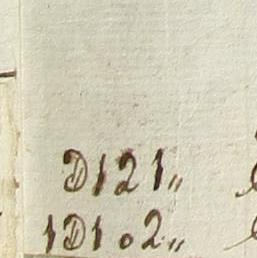 D121„
1D102„